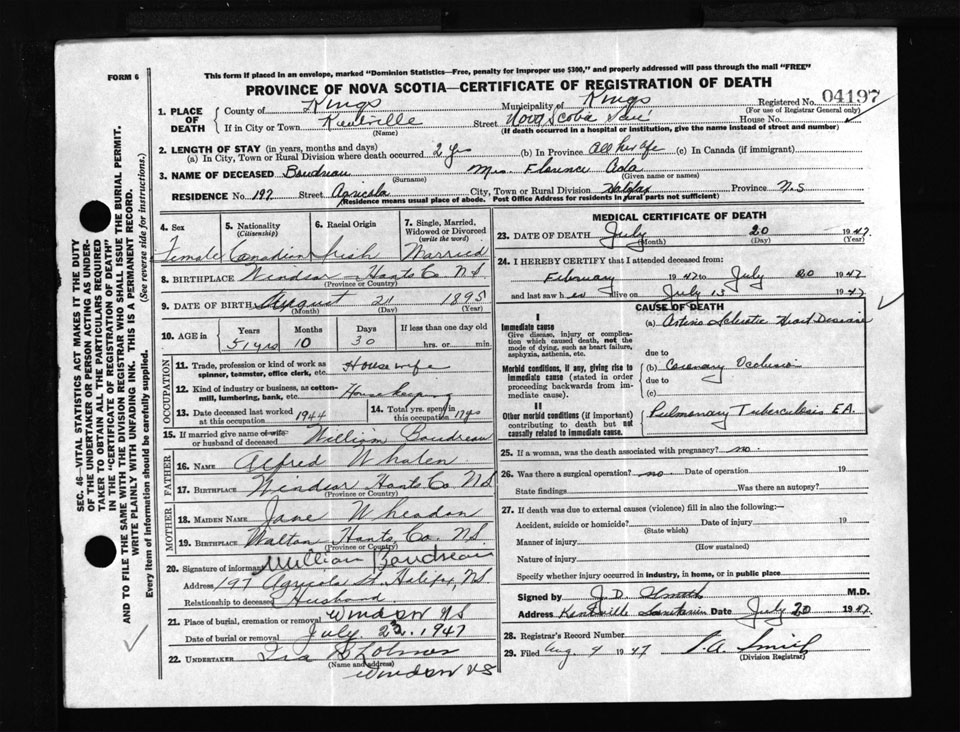 FORM 6
This form if placed in an envelope, marked "Dominion Statistics—Free, penalty for improper use $300," and properly addressed will pass through the mail "FREE"
PROVINCE OF NOVA SCOTIA—CERTIFICATE OF REGISTRATION OF DEATH
1. PLACE OF DEATH County of Kings Municipality of Kings Registered No. 04197
(For use of Registrar General only)
If in City or Town Kentville Street Nova Scotia San House No.
(Name) (If death occurred in a hospital or institution, give the name instead of street and number)
2. LENGTH OF STAY (in years, months and days)
(a) In City, Town or Rural Division where death occurred 2 y (b) In Province All her life (c) In Canada (if immigrant)
3. NAME OF DECEASED Boudreau Mrs. Florence Ada
(Surname) (Given name or names)
RESIDENCE No. 197 Street Agricola City, Town or Rural Division Halifax Province N.S
(Residence means usual place of abode. Post Office Address for residents in rural parts not sufficient)
SEC. 46—VITAL STATISTICS ACT MAKES IT THE DUTY
OF THE UNDERTAKER OR PERSON ACTING AS UNDER-
TAKER TO OBTAIN ALL THE PARTICULARS REQUIRED
IN THE "CERTIFICATE OF REGISTRATION OF DEATH"
AND TO FILE THE SAME WITH THE DIVISION REGISTRAR WHO SHALL ISSUE THE BURIAL PERMIT.
WRITE PLAINLY WITH UNFADING INK. THIS IS A PERMANENT RECORD.
Every item of information should be carefully supplied. (See reverse side for instructions.)
4. Sex 5. Nationality (Citizenship) 6. Racial Origin 7. Single, Married, Widowed or Divorced (write the word)
Female Canadian Irish Married
8. BIRTHPLACE Windsor Hants Co N.S
(Province or Country)
9. DATE OF BIRTH August 21 1895
(Month) (Day) (Year)
10. AGE in Years Months Days If less than one day old
51 yrs 10 30 hrs. or min.
OCCUPATION
11. Trade, profession or kind of work as spinner, teamster, office clerk, etc. Housewife
12. Kind of industry or business, as cotton-mill, lumbering, bank, etc. Housekeeping
13. Date deceased last worked at this occupation 1944 14. Total yrs. spent in this occupation
15. If married give name of wife or husband of deceased William Boudreau
FATHER
16. NAME Alfred Whalen
17. BIRTHPLACE Windsor Hants Co N.S
(Province or Country)
MOTHER
18. MAIDEN NAME Jane Wheadon
19. BIRTHPLACE Walton Hants Co. N.S.
(Province or Country)
20. Signature of informant William Boudreau
Address 197 Agricola St. Halifax, N.S.
Relationship to deceased Husband
21. Place of burial, cremation or removal Windsor NS
Date of burial or removal July 23, 1947
22. UNDERTAKER Ira
(Name and address)
Windsor NS
MEDICAL CERTIFICATE OF DEATH
23. DATE OF DEATH July 20 1947
(Month) (Day) (Year)
24. I HEREBY CERTIFY that I attended deceased from:
February 1947 to July 20 1947
and last saw h er alive on July 15 1947
CAUSE OF DEATH
I
Immediate cause
Give disease, injury or complication which caused death, not the mode of dying, such as heart failure, asphyxia, asthenia, etc.
(a) Heart Disease
due to
Morbid conditions, if any, giving rise to immediate cause (stated in order proceeding backwards from immediate cause).
(b) Coronary Occlusion
due to
(c)
II
Other morbid conditions (if important) contributing to death but not causally related to immediate cause.
Pulmonary Tuberculosis F.A.
25. If a woman, was the death associated with pregnancy? no.
26. Was there a surgical operation? no. Date of operation 19
State findings Was there an autopsy?
27. If death was due to external causes (violence) fill in also the following:—
Accident, suicide or homicide? Date of injury 19
(State which)
Manner of injury
(How sustained)
Nature of injury
Specify whether injury occurred in industry, in home, or in public place
Signed by J.D. M.D.
Address Kentville Sanitorium Date July 20 1947
28. Registrar's Record Number
29. Filed Aug 9 1947 Smith
(Division Registrar)